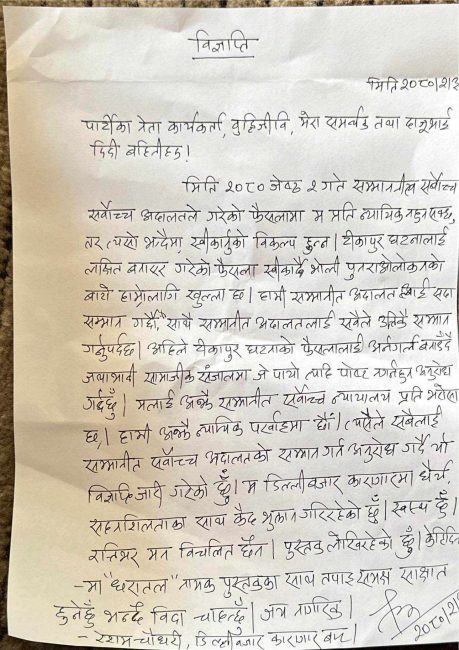 विज्ञप्ति
मिति २०८०।२।३
पार्टीका नेता कार्यकर्ता, वुद्धिजीवि, मेरा समर्थक तथा दाजुभाई
दिदी बहिनीहरु!
मिति २०८० जेष्ठ २ गते सम्मानीत सर्वोच्च
सर्वोच्च अदालतले गरेको फैसलामा म प्रति न्यायिक
तर त्यसो भन्दैमा, स्वीकार्नुको विकल्प हुन्न। टीकापुर घटनालाई
लक्षित बनाएर गरेको फैसला स्वीकार्दै भोली पुनरावलोकनको
बाटो हाम्रोलागि खुल्ला छ। हामी सम्मानीत अदालत लाई सदा
सम्मान गर्छौं, साथै सम्मानीत अदालतलाई सबैले उतिकै सम्मान
गर्नुपर्दछ। अहिले टीकापुर घटनाको फैसलालाई अनर्गल बनाउँदै
जथाभावी सामाजीक संजालमा जे पायो त्यहि पोस्ट नगर्नहुन अनुरोध
गर्दछुँ। मलाई अझै सम्मानीत सर्वोच्च न्यायालय प्रति भरोसा
छ। हामी अझै न्यायिक पर्खाइमा छौं। त्यसैले सबैलाई
सम्मानीत सर्वोच्च अदालतको सम्मान गर्न अनुरोध गर्दै यो
विज्ञप्ति जारी गरेको छुँ। म डिल्लीबजार कारागारमा धैर्य,
सहनशिलताका साथ कैद भुक्तान गरिरहेको छुँ। स्वस्थ छुँ।
रत्तिभर मन विचलित छैन। पुस्तक लेखिरहेको छुँ। केहिदिन
-मा "धरातल" नामक पुस्तकका साथ तपाइ समक्ष साक्षात
हुनेछुँ भन्दै विदा चाहन्छुँ। जय नागरिक।
- रेशम चौधरी, डिल्लीबजार कारागार बाट।
२०८०।२।३